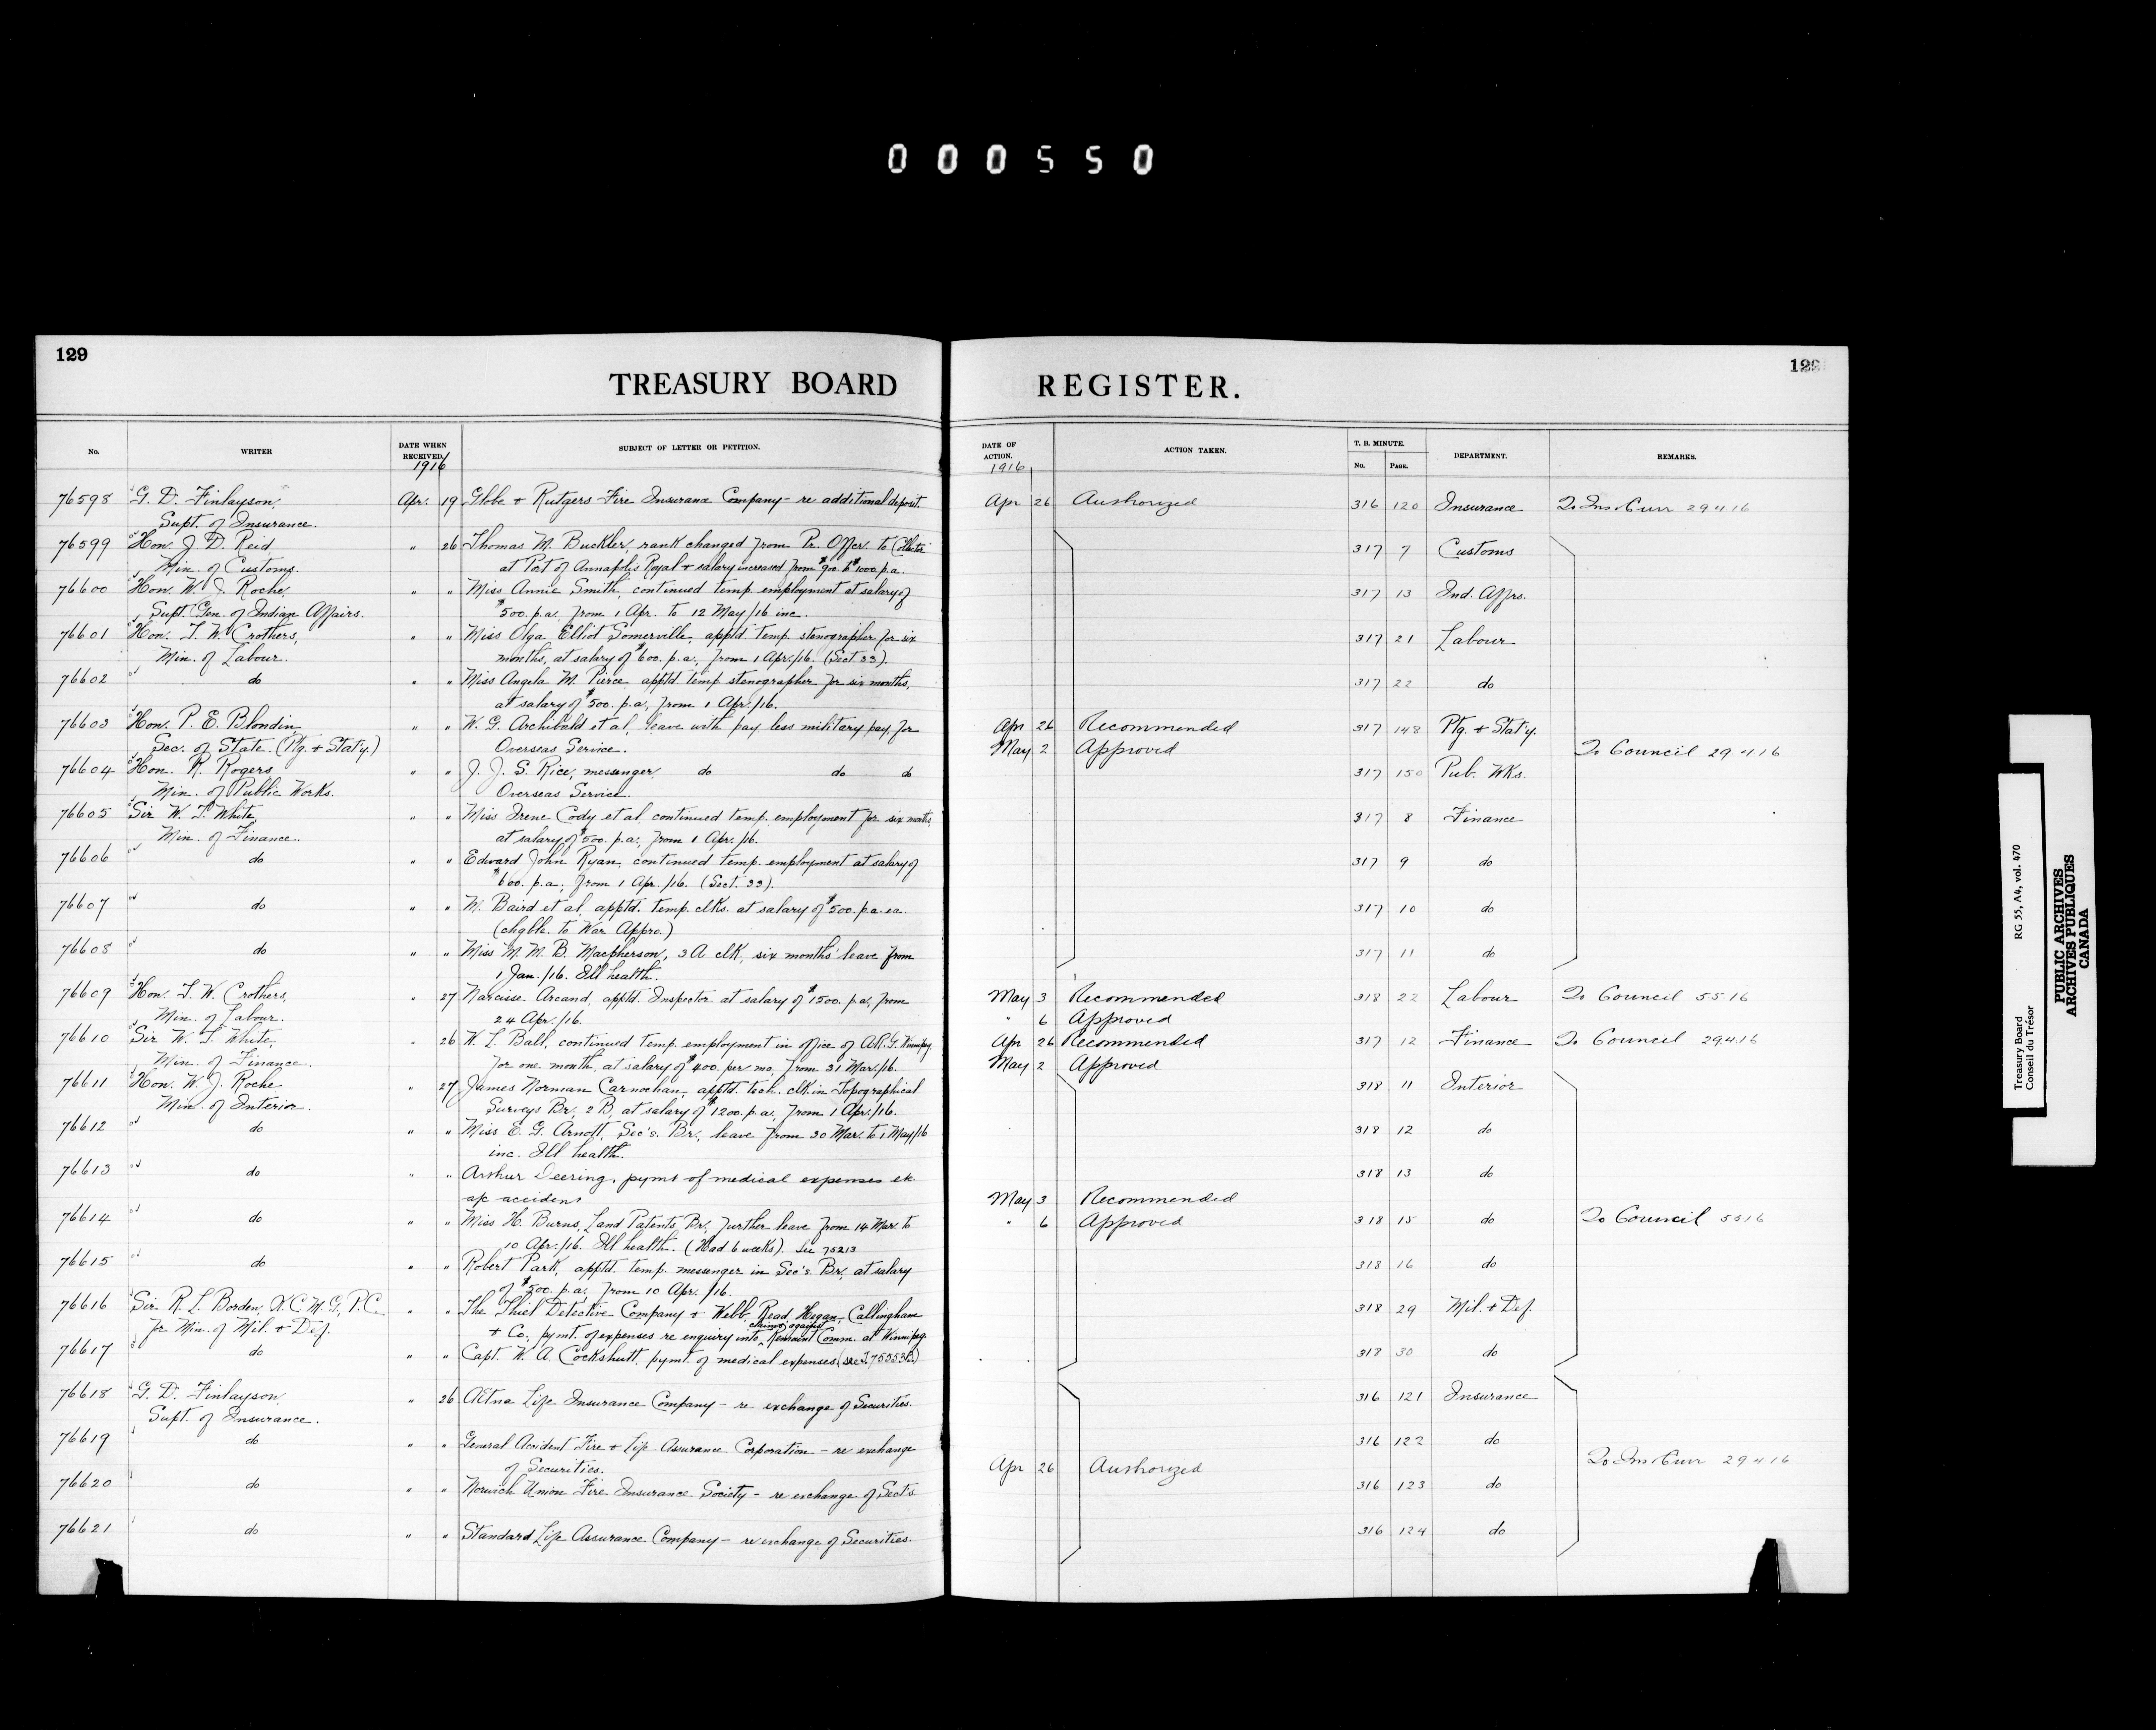 000550
129
TREASURY BOARD
No.
WRITER
DATE WHEN
RECEIVED
1916
SUBJECT OF LETTER OR PETITION.
76598 G. D. Finlayson, Apr. 19 Globe + Rutgers Fire Insurance Company - re additional deposit.
Supt. of Insurance.
76599 Hon. J. D. Reid, " 26 Thomas M. Buckler, rank changed from Pr. Offcr. to Collector
Min. of Customs. at Port of Annapolis Royal + salary increased from $900. to $1000. p.a.
76600 Hon. W. J. Roche, " " Miss Annie Smith, continued temp. employment at salary of
Supt. Gen. of Indian Affairs. $500. p.a. from 1 Apr. to 12 May/16 inc.
76601 Hon. T. W. Crothers, " " Miss Olga Elliot Somerville, apptd. temp. stenographer for six
Min. of Labour. months, at salary of $600. p.a., from 1 Apr./16. (Sect. 33).
76602 do " " Miss Angela M. Pierce apptd. temp. stenographer for six months,
at salary of $500. p.a., from 1 Apr./16.
76603 Hon. P. E. Blondin, " " W. G. Archibald et al, leave with pay less military pay, for
Sec. of State. (Ptg. + Stat'y.) Overseas Service.
76604 Hon. R. Rogers, " " J. J. S. Rice, messenger, do do do
Min. of Public Works. Overseas Service.
76605 Sir W. T. White, " " Miss Irene Cody et al, continued temp. employment for six months,
Min. of Finance. at salary of $500. p.a., from 1 Apr./16.
76606 do " " Edward John Ryan, continued temp. employment at salary of
$600. p.a., from 1 Apr./16. (Sect. 33).
76607 do " " M. Baird et al, apptd. temp. clks. at salary of $500. p.a. ea.
(chgble. to War Appro.)
76608 do " " Miss M. M. B. Macpherson, 3A clk, six months' leave from
1 Jan./16. Ill health.
76609 Hon. T. W. Crothers, " 27 Narcisse Arcand, apptd. Inspector at salary of $1500. p.a., from
Min. of Labour. 24 Apr./16.
76610 Sir W. T. White, " 26 H. L. Ball, continued temp. employment in office of A.R.G. Winnipeg,
Min. of Finance. for one month, at salary of $400. per mo., from 31 Mar./16.
76611 Hon. W. J. Roche " 27 James Norman Carnochan, apptd. tech. clk. in Topographical
Min. of Interior. Surveys Br., 2 B, at salary of $1200. p.a., from 1 Apr./16.
76612 do " " Miss E. G. Arnott, Sec's. Br., leave from 30 Mar. to 1 May/16
inc. Ill health.
76613 do " " Arthur Deering, pymt of medical expenses
a/c accident
76614 do " " Miss H. Burns, Land Patents Br., further leave from 14 Mar. to
10 Apr./16. Ill health. (Had 6 weeks). See 75213
76615 do " " Robert Park, apptd. temp. messenger in Sec's. Br., at salary
of $500. p.a., from 10 Apr./16.
76616 Sir R. L. Borden, K.C.M.G., P.C. " " The Thiel Detective Company + Webb, Read, Hegan, Callingham
for Min. of Mil. + Def. + Co., pymt. of expenses re enquiry into claims against Remount Comm. at Winnipeg.
76617 do " " Capt. W. A. Cockshutt, pymt. of medical expenses
76618 G. D. Finlayson, " 26 Aetna Life Insurance Company - re exchange of Securities.
Supt. of Insurance.
76619 do " " General Accident Fire + Life Assurance Corporation - re exchange
of Securities.
76620 do " " Norwich Union Fire Insurance Society - re exchange of Sect's.
76621 do " " Standard Life Assurance Company - re exchange of Securities.
129
REGISTER.
DATE OF
ACTION.
1916
ACTION TAKEN.
T. B. MINUTE.
No. PAGE.
DEPARTMENT.
REMARKS.
Apr 26 Authorized 316 120 Insurance 29 4 16
317 7 Customs
317 13 Ind. Affrs.
317 21 Labour
317 22 do
Apr 26 Recommended 317 148 Ptg. + Stat'y.
May 2 Approved To Council 29.4.16
317 150 Pub. Wks.
317 8 Finance
317 9 do
317 10 do
317 11 do
May 3 Recommended 318 22 Labour To Council 5 5 16
" 6 Approved
Apr 26 Recommended 317 12 Finance To Council 29.4.16
May 2 Approved
318 11 Interior
318 12 do
318 13 do
May 3 Recommended
" 6 Approved 318 15 do To Council 5 5 16
318 16 do
318 29 Mil. + Def.
318 30 do
316 121 Insurance
316 122 do
Apr 26 Authorized 29 4 16
316 123 do
316 124 do
Treasury Board RG 55, A4, vol. 470
Conseil du Trésor
PUBLIC ARCHIVES
ARCHIVES PUBLIQUES
CANADA